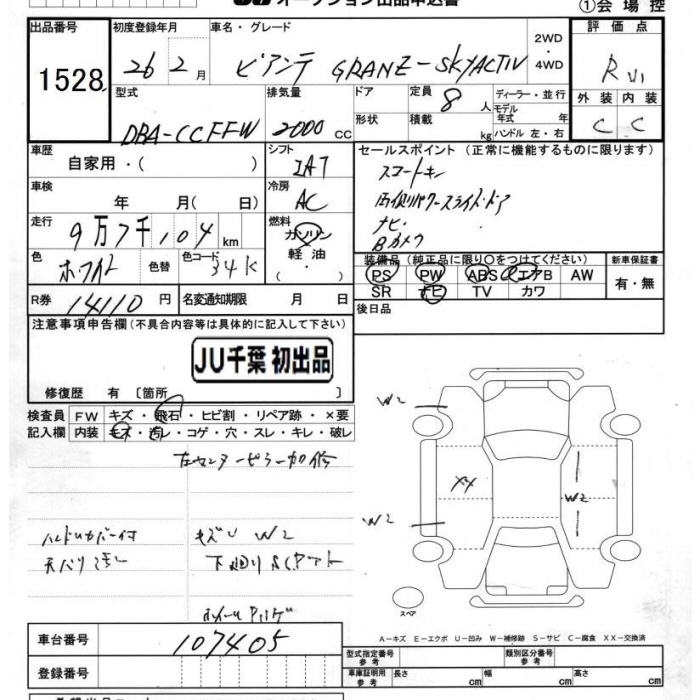 オークション出品申込書
①会場控
出品番号 1528
初度登録年月 26 2月
車名・グレード ビアンテ GRANZ-SKYACTIV
2WD・4WD
評価点 R
外装 C 内装 C
型式 DBA-CCFFW
排気量 2000 CC
ドア 形状
定員 8 人
積載 kg
ディーラー・並行
モデル年式 年
ハンドル 左・右
車歴 自家用・( )
シフト IAT
車検 年 月( 日)
冷房 AC
走行 9万7千104 km
燃料 ガソリン 軽油 ( ・ )
色 ホワイト 色替
色コード 34K
R券 14110 円
名変通知期限 月 日
セールスポイント (正常に機能するものに限ります)
スマートキー
両側パワースライドドア
ナビ・
Bカメラ
装備品 (純正品に限り○をつけてください)
PS PW ABS エアB AW
SR ナビ TV カワ
新車保証書
有・無
後日品
注意事項申告欄(不具合内容等は具体的に記入して下さい)
JU千葉 初出品
修復歴 有 〔箇所
検査員記入欄
FW キズ・飛石・ヒビ割・リペア跡・×要
内装 キズ・汚レ・コゲ・穴・スレ・キレ・破レ
左センターピラー加修
ハンドルカバー付
天バリ汚レ
キズU W2
下廻り
W2
XX
W2
W2
スペア
A-キズ E-エクボ U-凹み W-補修跡 S-サビ C-腐食 XX-交換済
車台番号 107405
登録番号
型式指定番号 参考
類別区分番号 参考
車庫証明用 参考 長さ cm 幅 cm 高さ cm